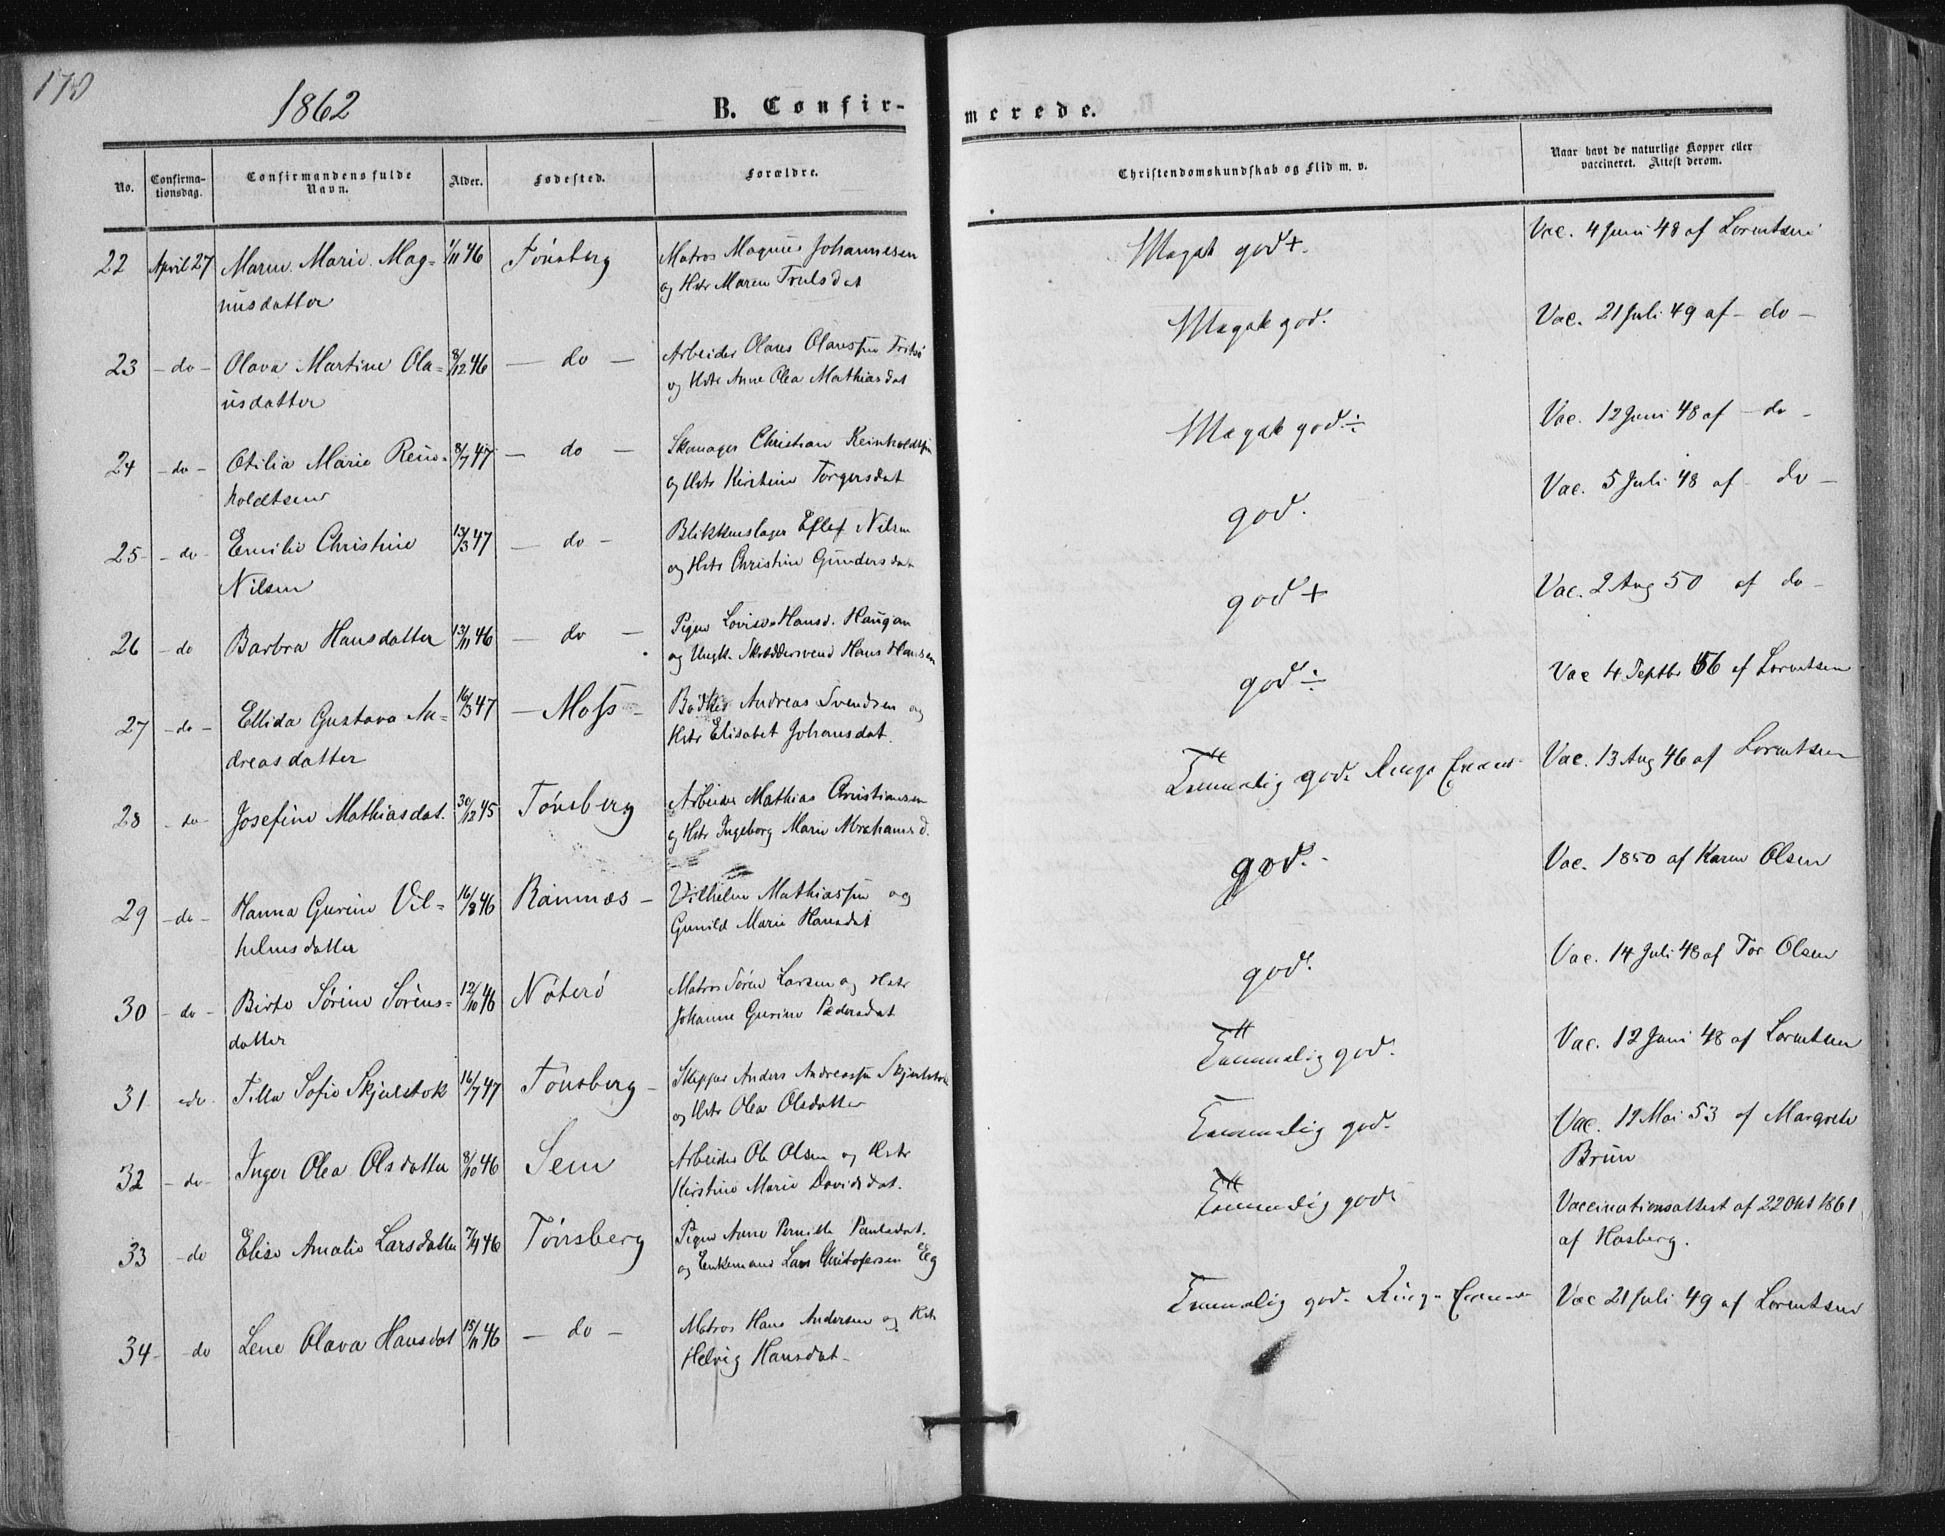 170
1862
B. Confir-
merede.
No.
Confirma-
tionsdag.
Confirmandens fulde
Navn.
Alder.
Fødested.
Forældre.
Christendomskundskab og Flid m. v.
Naar havt de naturlige Kopper eller
vaccineret. Attest derom.
22 April 27 Maren Marie Mag- 1/11 46 Tønsberg Matros Magnus Johannesen Meget god + Vac. 4 Juni 48 af Lorentsen
nusdatter og Hstr Maren Trulsdat
23 - do - Olava Martine Ola- 8/12 46 - do - Arbeider Olaus Olaussen Meget god. Vac. 21 Juli 49 af - do -
usdatter og Hstr Anne Olea Mathiasdat
24 - do - Otilia Marie Rein- 8/7 47 - do - Skomager Christian Reinholdtsen Meget god ÷ Vac. 12 Juni 48 af - do -
holdtsen og Hstr Kirstine Torgersdat
25 - do - Emilie Christine 13/3 47 - do - Blikkenslager Eflef Nilsen god. Vac. 5 Juli 48 af - do -
Nilsen og Hstr Christine Gundersdat
26 - do Barbra Hansdatter 13/11 46 - do - Pigen Lovise Hansd. Haugan god + Vac. 2 Aug 50 af do -
og Ungk. Skræddersvend Hans Hansen
27 - do - Ellida Gustava An- 16/3 47 - Moss - Bødker Andreas Svendsen og god ÷ Vac 4 Septbr 56 af Lorentsen
dreasdatter Hstr Elisabet Johansdat.
28 - do - Josefine Mathiasdat. 30/12 45 Tønsberg Arbeider Mathias Christiansen Temmelig god. Ringe Vac. 13 Aug 46 af Lorentsen
og Hstr Ingeborg Marie Abrahamsd.
29 - do - Hanna Gurine Vil- 16/8 46 Ramnæs - Vilhelm Mathiassen og god. Vac. 1850 af Karen Olsen
helmsdatter Gunild Marie Hansdat
30 - do - Birte Sørine Sørens- 12/10 46 Nøterø Matros Søren Larsen og Hstr god. Vac. 14 Juli 48 af Tor Olsen
datter Johanne Gurine Pedersdat
31 - do - Tilla Sofie Skjelstok 16/7 47 Tønsberg - Skipper Anders Andreassen Skjelstok Temmelig god. Vac. 12 Juni 48 af Lorentsen
og Hstr Olea Olsdatter
32 - do - Inger Olea Olsdatter 8/10 46 Sem Arbeider Ole Olsen og Hstr Temmelig god. Vac. 12 Mai 53 af Margrete
Kirstine Marie Davidsdat. Brun
33 - do Elise Amalie Larsdatter 7/9 46 Tønsberg Pigen Anne Pernille Paulsdat. Temmelig god. Vaccinationsattest af 22 Okt 1861
og Enkemand Lars Christofersen Eeg af Hasberg.
34 - do Lene Olava Hansdat 15/11 46 - do - Matros Hans Andersen og Hstr Temmelig god. Ringe Vac 21 Juli 49 af Lorentsen
Helvig Hansdat -